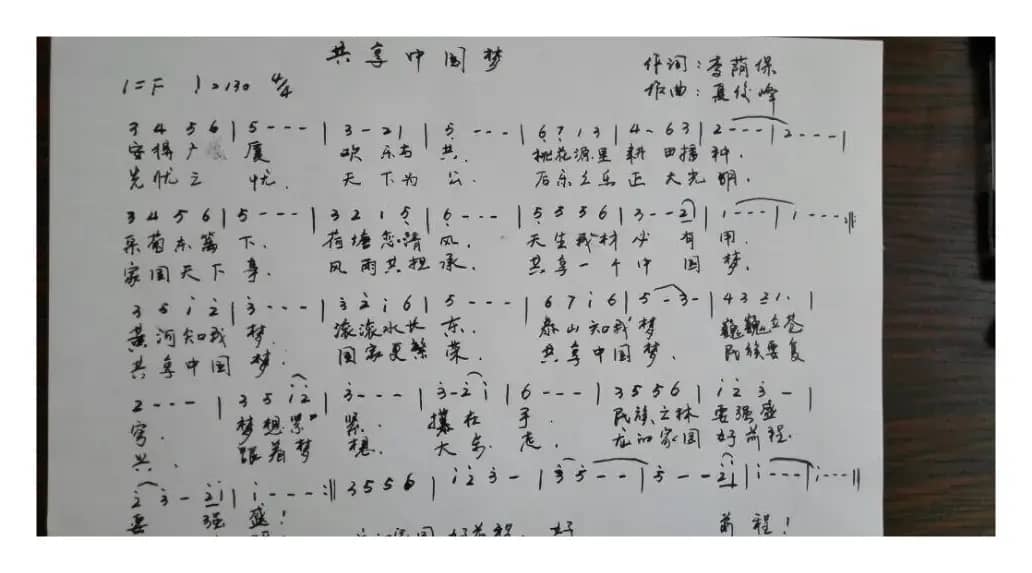 共享中国梦
作词:李荫保
1=F ♩=130 4/4
作曲:夏俊峰
3 4 5 6 | 5 - - - | 3 - 2 1 | 5̣ - - - | 6̣ 7̣ 1 3 | 4 - 6 3 | 2 - - - | 2 - - - |
安得广 厦 欢乐与共. 桃花源里耕田播种.
先忧之忧. 天下为公. 后乐之乐正大光明.
3 4 5 6 | 5 - - - | 3 2 1 5̣ | 6̣ - - - | 5̣ 5̣ 5̣ 6̣ | 3 - - 2 | 1 - - - | 1 - - - :||
采菊东篱下. 荷塘恋清风. 天生我材必有用.
家国天下事. 风雨共担承. 共享一个中国梦.
3 5 i 2̇ | 3̇ - - - | 3̇ 2̇ i 6 | 5 - - - | 6 7 i 6 | 5 - 3 - | 4 3 2 1 |
黄河知我梦. 滚滚水长东. 泰山知我梦 巍巍立苍
共享中国梦. 国家更繁荣. 共享中国梦. 民族要复
2 - - - | 3 5 i 2̇ | 3̇ - - - | 3̇ - 2̇ i | 6 - - - | 3 5 5 6 | i 2̇ 3̇ - |
穹. 梦想紧紧. 攥在手. 民族之林要强盛
兴. 跟着梦想. 大步走. 龙的家园好前程.
2̇ 3̇ - 2̇ i | i - - - :|| 3 5 5 6 | i 2̇ 3̇ - | 3̇ 5̇ - - | 5̇ - - 2̇ | i - - - | i - - - ||
要强盛!
家园好前程. 好 前程!